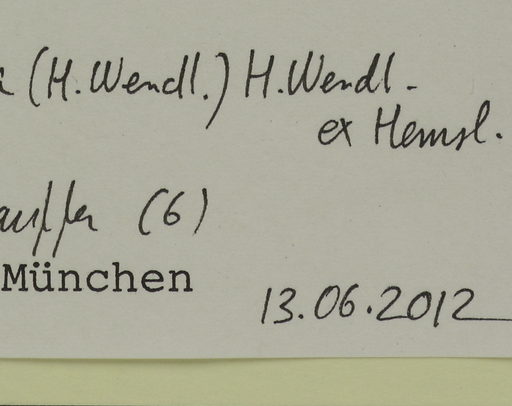 (H.Wendl.) H.Wendl.
ex Hemsl.
(6)
München
13.06.2012